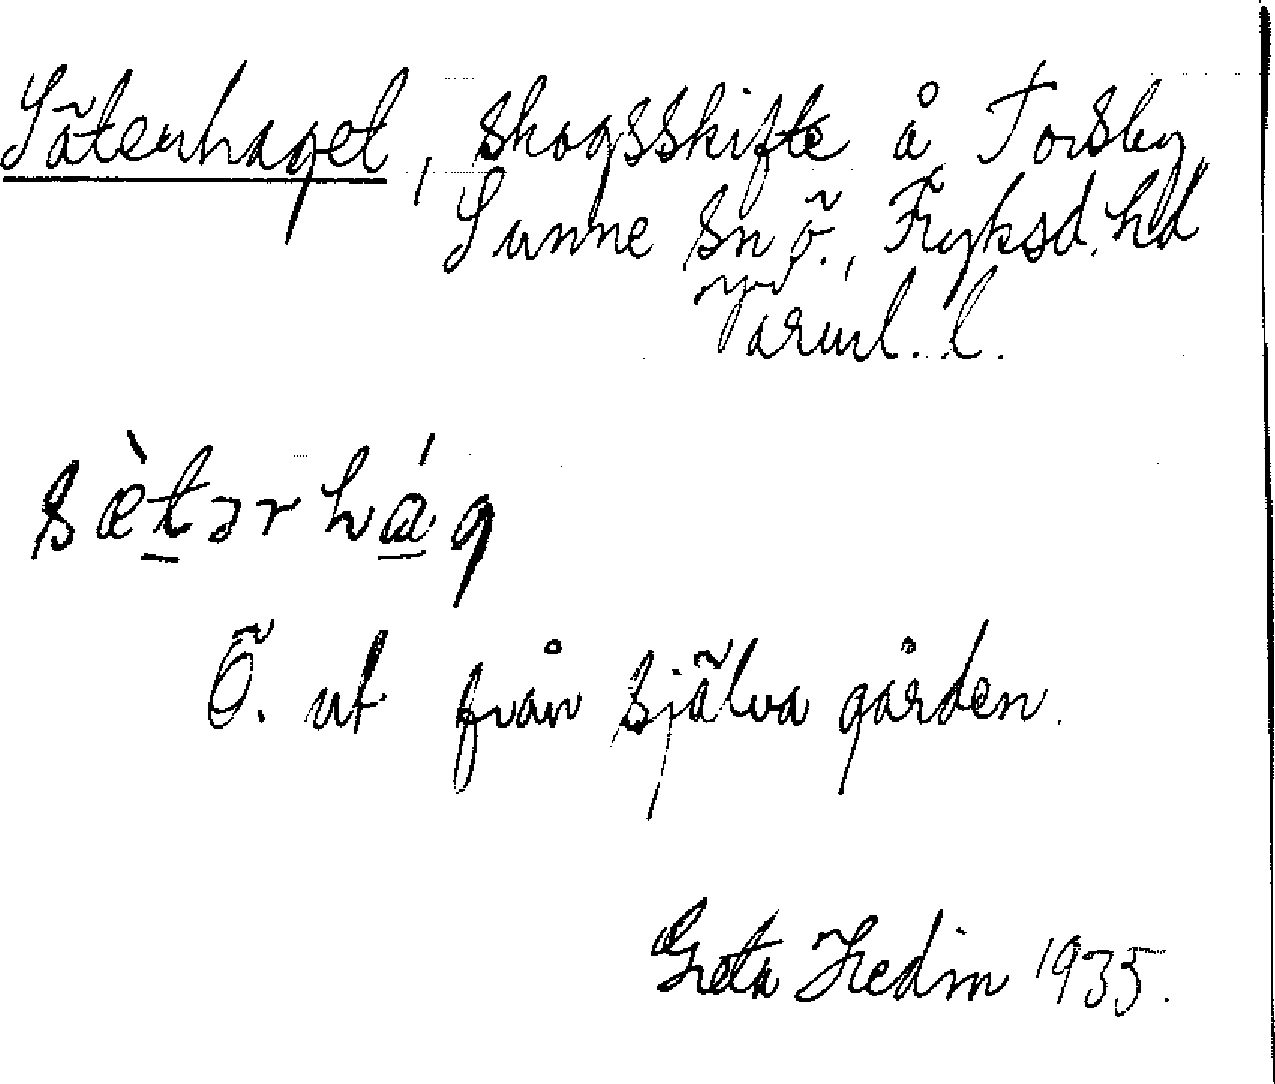 Säterhaget, skogsskifte å Torsby,
Sunne sn Ö., Fryksd. hd
Värml. l.
sæ̀tərhág
Ö. ut från själva gården.
Greta Hedin 1935.